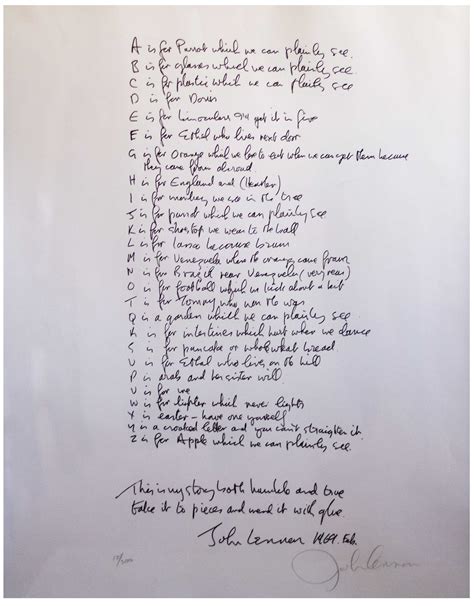 A is for Parrot which we can plainly see.
B is for glasses which we can plainly see.
C is for plastic which we can plainly see
D is for Doris
E is for binoculars I'll get it in five
F is for Ethel who lives next door
G is for Orange which we love to eat when we can get them because
they come from abroad.
H is for England and (Heather)
I is for monkey we see in the tree
J is for parrot which we can plainly see
K is for shoetop we wear to the ball
L is for lassa because brum
M is for Venezuela where the oranges come from
N is for Brazil near Venezuela (very near)
O is for football which we kick about a bit
T is for Tommy who won the war
Q is a garden which we can plainly see
R is for intestines which hurt when we dance
S is for pancake or whole wheat bread.
U is for Ethel who lives on the hill
P is arab and her sister will
V is for me
W is for lighter which never lights
X is easter - have one yourself
Y is a crooked letter and you can't straighten it
Z is for Apple which we can plainly see.
This is my story both humble and true
take it to pieces and mend it with glue.
John Lennon 1969. Feb.
/300 John Lennon